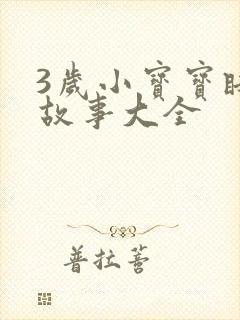 3歲小寶寶睡
故事大全
普拉菩